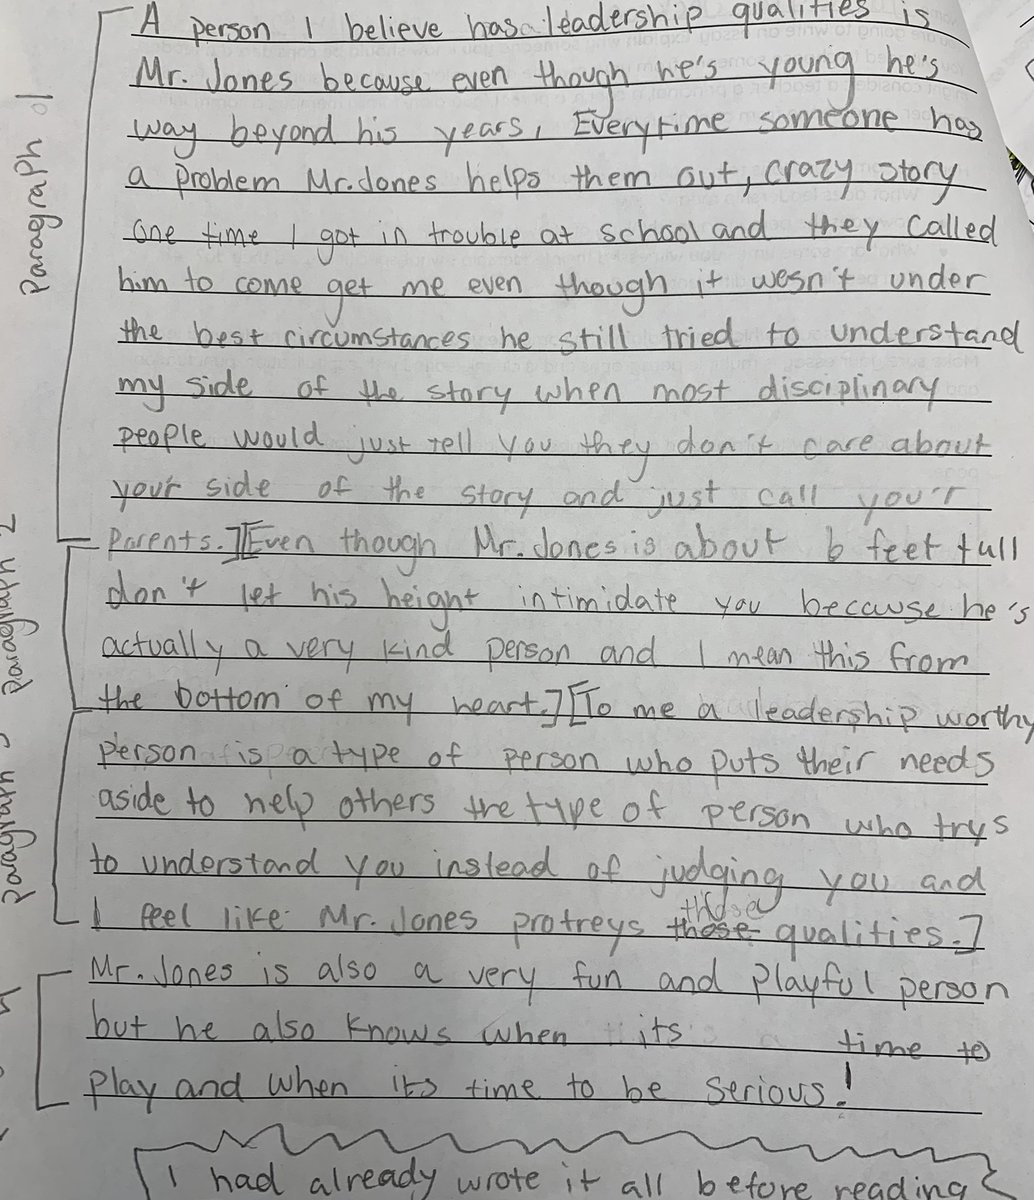 A person I believe has a leadership qualities is
Mr. Jones because even though he's young he's
way beyond his years, Everytime someone has
a problem Mr. Jones helps them out, crazy story
one time I got in trouble at school and they called
him to come get me even though it wesn't under
the best circumstances he still tried to understand
my side of the story when most disciplinary
people would just tell you they don't care about
your side of the story and just call you'r
Parents.][Even though Mr. Jones is about 6 feet tall
don't let his height intimidate you because he's
actually a very kind person and I mean this from
the bottom of my heart.][To me a leadership worthy
person is a type of person who puts their needs
aside to help others the type of person who trys
to understand you instead of judging you and
I feel like Mr. Jones protreys those qualities.]
Mr. Jones is also a very fun and playful person
but he also knows when its time to
play and when its time to be serious!
I had already wrote it all before reading
Paragraph 01
Paragraph 2
Paragraph 3